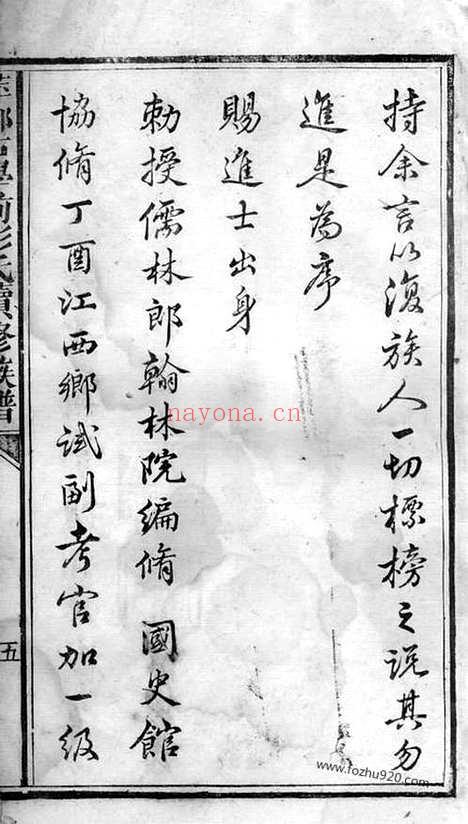 持余言以復族人一切標榜之說其勿
進是為序
賜進士出身
勅授儒林郎翰林院編脩 國史館
協脩丁酉江西鄉試副考官加一級
彭氏續修族譜
五
nayona.cn
www.fozhu920.com